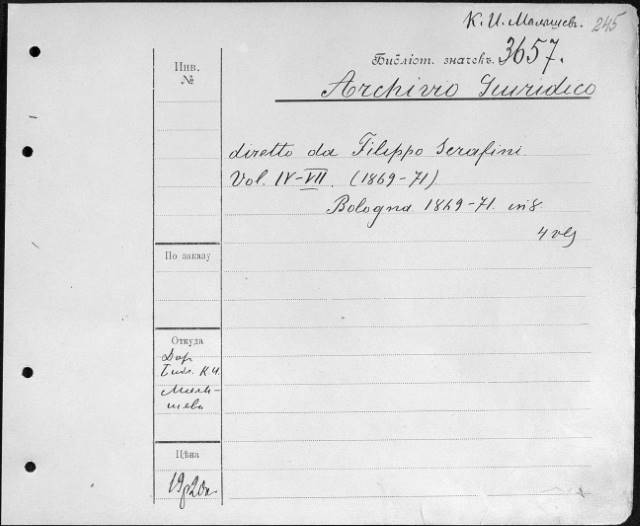 К. И. Малышев. 245
Библіот. значекъ. 3657.
Инв.
№
Archivio Giuridico
diretto da Filippo Serafini.
Vol. IV-VII. (1869-71).
Bologna. 1869-71. in 8.
4 vls
По заказу
Откуда
Дар
Библ. К. И.
Малы-
шева
Цѣна
19р 20к